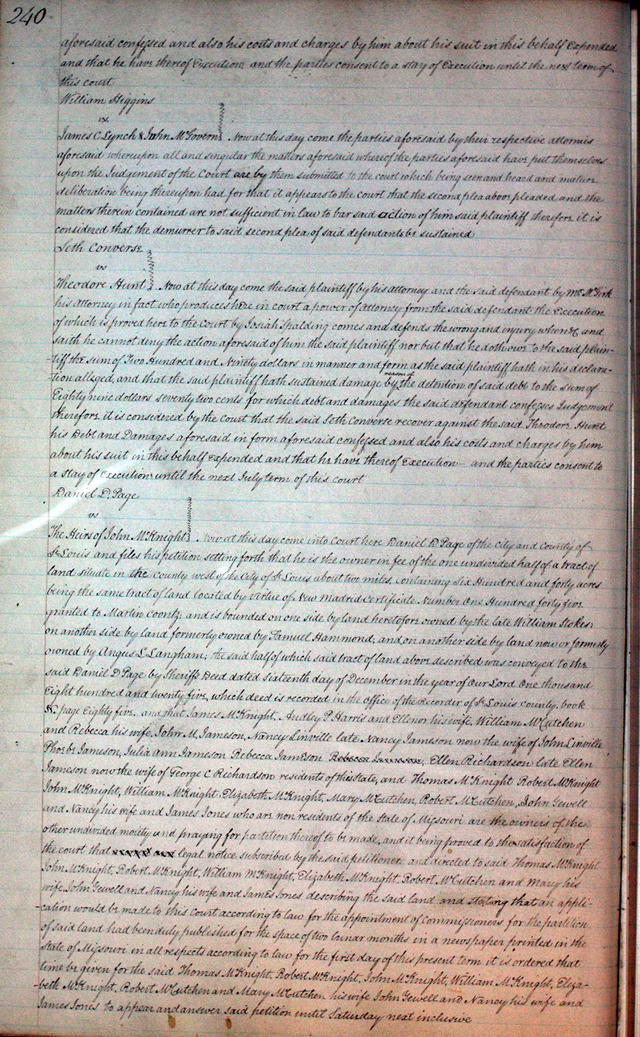 240
aforesaid confessed and also his costs and charges by him about his suit in this behalf Expended
and that he have thereof Execution and the parties consent to a stay of Execution until the next term of
this court
William Higgins
vs
James C Lynch & John McGovern Now at this day come the parties aforesaid by their respective attornies
aforesaid whereupon all and singular the matters aforesaid whereof the parties aforesaid have put themselves
upon the Judgement of the Court are by them submitted to the court which being seen and heard and mature
deliberation being thereupon had for that it appears to the court that the second plea above pleaded and the
matters therein contained are not sufficient in law to bar said action of him said plaintiff therefore it is
considered that the demurrer to said second plea of said defendants be sustained
Seth Converse
vs
Theodore Hunt Now at this day come the said plaintiff by his attorney and the said defendant by Mr
his attorney in fact who produces here in court a power of attorney from the said defendant the Execution
of which is proved here to the court by Josiah Spalding comes and defends the wrong and injury when &c and
saith he cannot deny the action aforesaid of him the said plaintiff nor but that he doth owe to the said plain-
tiff the sum of Two Hundred and Ninety dollars in manner and form as the said plaintiff hath in his declara-
tion alleged, and that the said plaintiff hath sustained damage by the detention of said debt to the sum of
Eighty nine dollars seventy two cents for which debt and damages the said defendant confesses Judgement
therefore it is considered by the Court that the said Seth Converse recover against the said Theodore Hunt
his Debt and Damages aforesaid in form aforesaid confessed and also his costs and charges by him
about his suit in this behalf Expended and that he have thereof Execution— and the parties consent to
a stay of Execution until the next July term of this court
Daniel D. Page
vs
The Heirs of John McKnight Now at this day come into Court here Daniel D Page of the city and county of
St Louis and files his petition setting forth that he is the owner in fee of the one undivided half of a tract of
land situate in the county west of the City of St Louis about two miles containing Six Hundred and forty acres
being the same tract of land located by virtue of New Madrid certificate Number One Hundred forty five
granted to Martin Coontz and is bounded on one side by land heretofore owned by the late William Stokes;
on another side by land formerly owned by Samuel Hammond, and on another side by land now or formerly
owned by Angus L Langham; the said half of which said tract of land above described was conveyed to the
said Daniel D Page by Sheriffs Deed dated sixteenth day of December in the year of Our Lord One thousand
Eight hundred and twenty five, which deed is recorded in the office of the recorder of St Louis county, book
page Eighty five. and that James McKnight, Audley P. Harris and Ellenor his wife, William McCutchen
and Rebecca his wife, John M, Jameson, Nancy Linville late Nancy Jameson now the wife of John Linville
Phoebe Jameson, Julia Ann Jameson Rebecca Jameson Rebecca Jameson, Ellen Richardson late Ellen
Jameson now the wife of George C Richardson residents of this state, and Thomas McKnight Robert McKnight
John McKnight, William McKnight, Elizabeth McKnight, Mary McCutchen, Robert McCutchen, John Jewell
and Nancy his wife and James Jones who are non residents of the State of Missouri are the owners of the
other undivided moiety and praying for partition thereof to be made, and it being proved to the satisfaction of
the court that legal notice subscribed by the said petitioner and directed to said Thomas McKnight
John McKnight, Robert McKnight, William McKnight, Elizabeth McKnight, Robert McCutchen and Mary his
wife John Jewell and Nancy his wife and James Jones describing the said land and stating that an appli-
cation would be made to this Court according to law for the appointment of Commissioners for the partition
of said land had been duly published for the space of two lunar months in a newspaper printed in the
State of Missouri in all respects according to law for the first day of this present term it is ordered that
time be given for the said Thomas McKnight, Robert McKnight, John McKnight, William McKnight, Eliza-
beth McKnight, Robert McCutchen and Mary McCutchen his wife John Jewell and Nancy his wife and
James Jones to appear and answer said petition until Saturday next inclusive